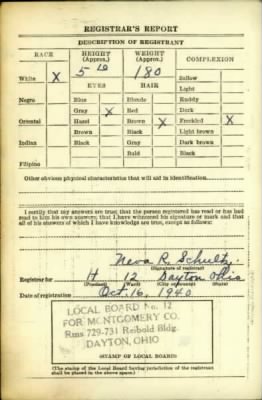 REGISTRAR'S REPORT
DESCRIPTION OF REGISTRANT
RACE HEIGHT (Approx.) WEIGHT (Approx.) COMPLEXION
White X 5 10 180 Sallow
EYES HAIR Light
Negro Blue Blonde Ruddy
Gray X Red Dark
Oriental Hazel Brown X Freckled X
Brown Black Light brown
Indian Black Gray Dark brown
Bald Black
Filipino
Other obvious physical characteristics that will aid in identification
I certify that my answers are true; that the person registered has read or has had
read to him his own answers; that I have witnessed his signature or mark and that
all of his answers of which I have knowledge are true, except as follows:
Neva R. Schultz.
(Signature of registrar)
Registrar for H 12 Dayton Ohio
(Precinct) (Ward) (City or county) (State)
Date of registration Oct. 16, 1940
LOCAL BOARD No. 12
FOR MONTGOMERY CO.
Rms 729-731 Reibold Bldg.
DAYTON, OHIO
(STAMP OF LOCAL BOARD)
(The stamp of the Local Board having jurisdiction of the registrant
shall be placed in the above space.)